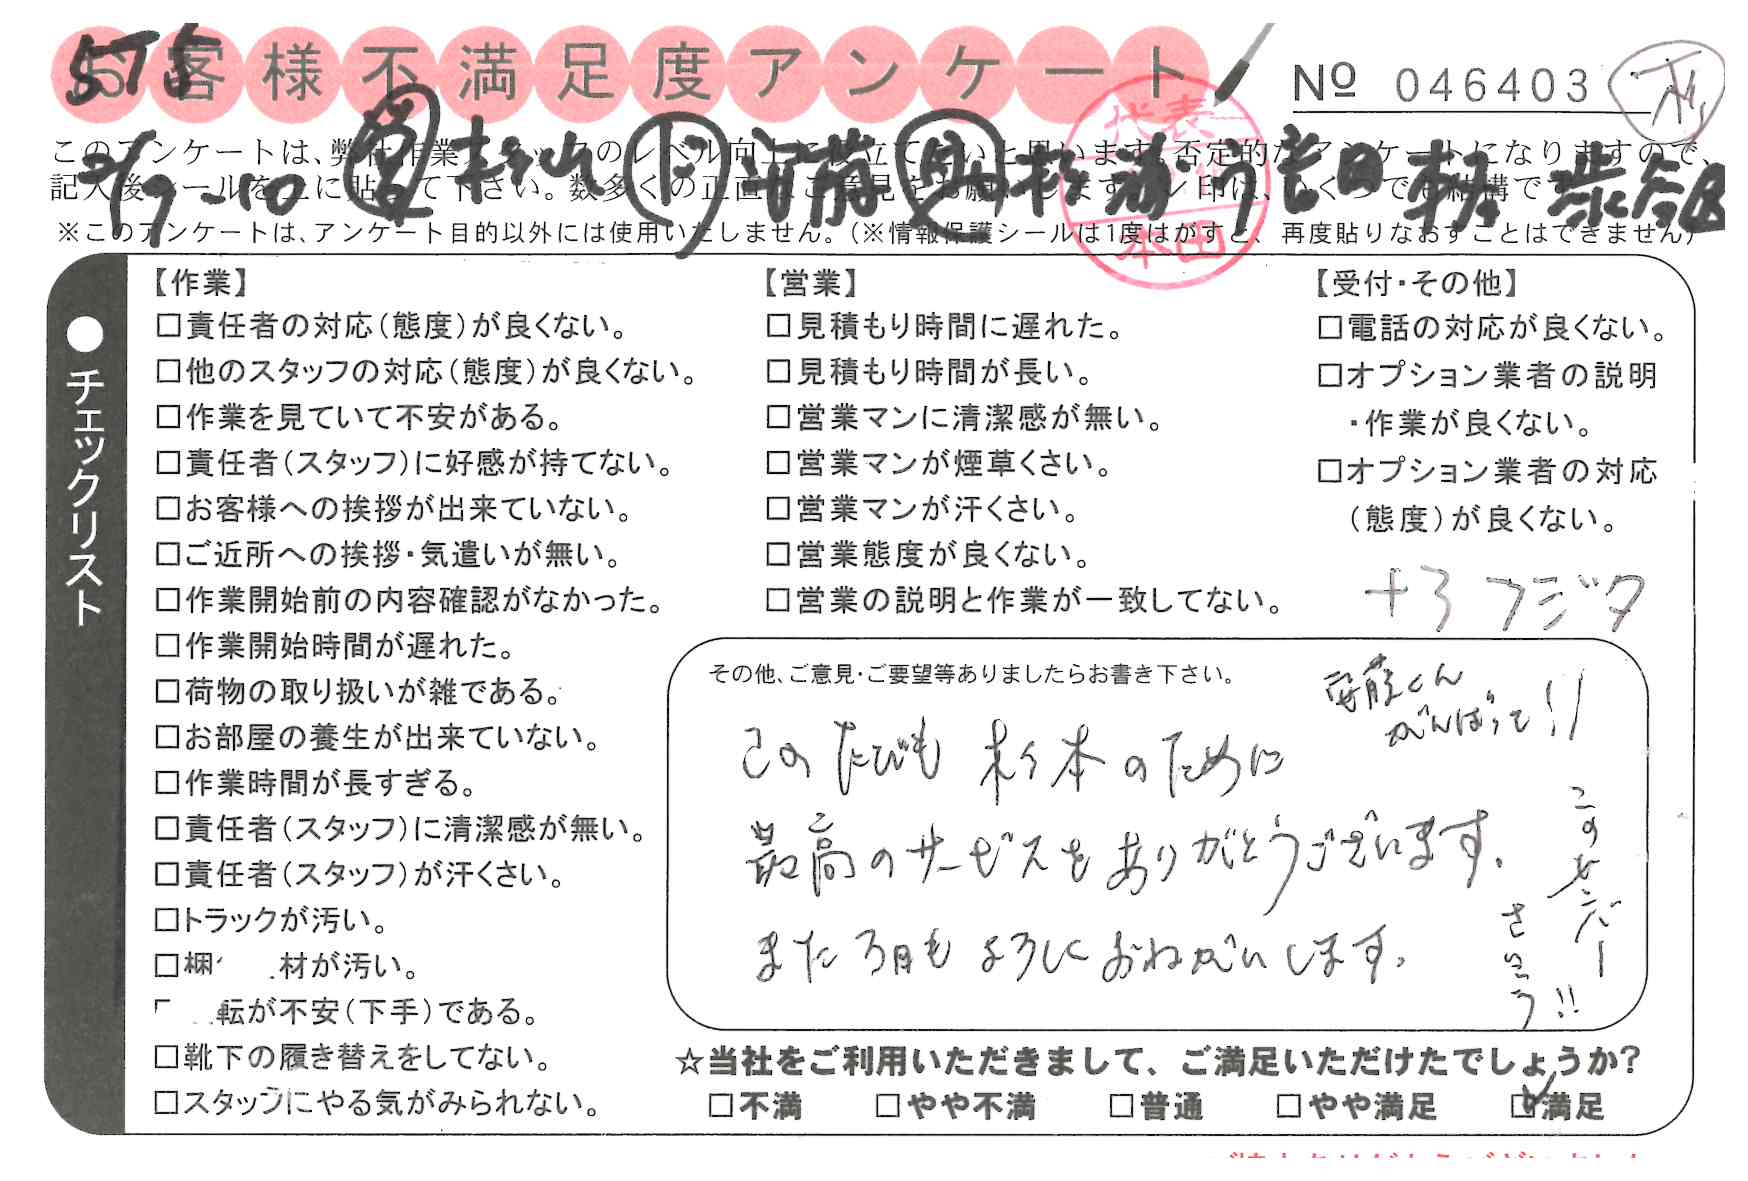 お客様不満足度アンケート
Nº 046403
このアンケートは、弊社作業スタッフのレベル向上に役立てたいと思います。否定的なアンケートになりますので、
記入後シールを上に貼って下さい。数多くの正直なご意見をお願いします。レ印は、いくつでも結構です
※このアンケートは、アンケート目的以外には使用いたしません。(※情報保護シールは1度はがすと、再度貼りなおすことはできません)
代表
本田
●チェックリスト
【作業】
□責任者の対応(態度)が良くない。
□他のスタッフの対応(態度)が良くない。
□作業を見ていて不安がある。
□責任者(スタッフ)に好感が持てない。
□お客様への挨拶が出来ていない。
□ご近所への挨拶・気遣いが無い。
□作業開始前の内容確認がなかった。
□作業開始時間が遅れた。
□荷物の取り扱いが雑である。
□お部屋の養生が出来ていない。
□作業時間が長すぎる。
□責任者(スタッフ)に清潔感が無い。
□責任者(スタッフ)が汗くさい。
□トラックが汚い。
□梱 材が汚い。
転が不安(下手)である。
□靴下の履き替えをしてない。
□スタッフにやる気がみられない。
【営業】
□見積もり時間に遅れた。
□見積もり時間が長い。
□営業マンに清潔感が無い。
□営業マンが煙草くさい。
□営業マンが汗くさい。
□営業態度が良くない。
□営業の説明と作業が一致してない。
【受付・その他】
□電話の対応が良くない。
□オプション業者の説明
・作業が良くない。
□オプション業者の対応
(態度)が良くない。
+3 フジタ
その他、ご意見・ご要望等ありましたらお書き下さい。
安藤くん
がんばって!!
このたびも 杉本のために
最高のサービスをありがとうございます。
また3月もよろしくおねがいします。
このメンバー
さいこう!!
☆当社をご利用いただきまして、ご満足いただけたでしょうか?
□不満 □やや不満 □普通 □やや満足 ☑満足